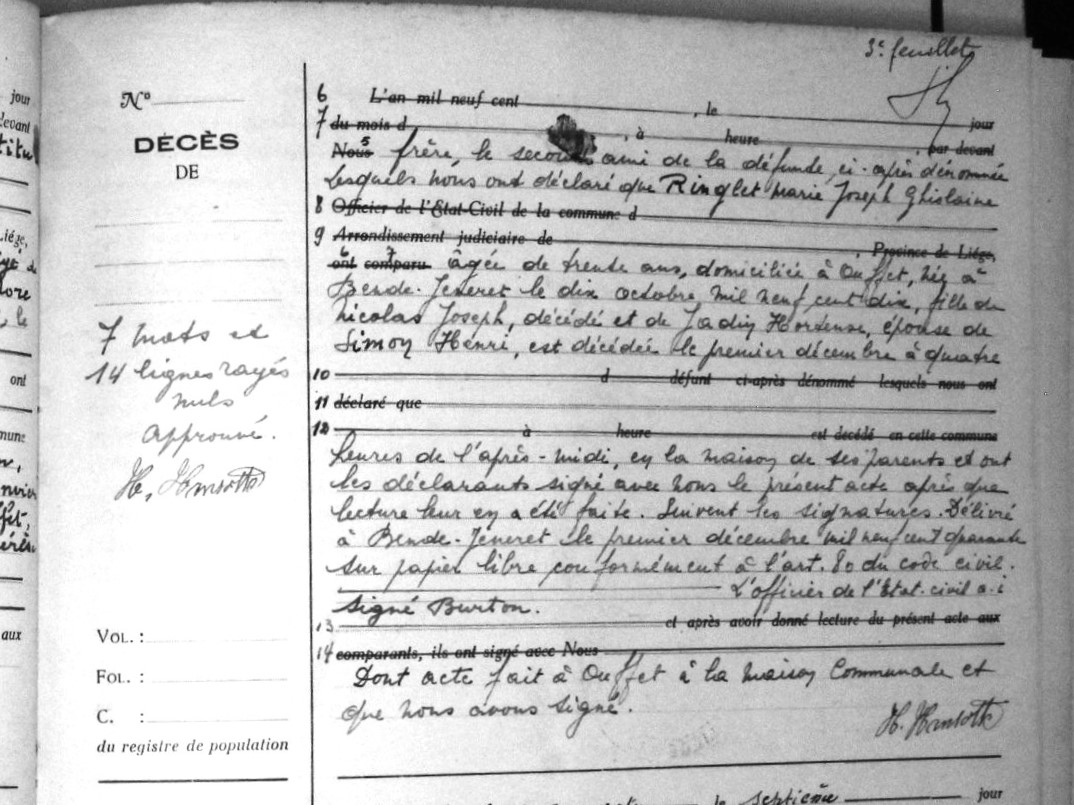 3e feuillet
jour
levant
titu
Liége,
lore
, le
ont
mune
nvier
ffet,
aux
No
DÉCÈS
DE
7 mots et
14 lignes rayés
nuls
approuvé.
VOL. :
FOL. :
C. :
du registre de population
6 L'an mil neuf cent , le jour
7 du mois d , à heure , par devant
Nous frère, le second ami de la défunde, ci-après dénommée
Lesquels nous ont déclaré que Ringlet Marie Joseph Ghislaine
8 Officier de l'Etat-Civil de la commune d
9 Arrondissement judiciaire de , Province de Liége,
ont comparu âgée de trente ans, domiciliée à Ouffet, née à
Bende-Jeneret le dix octobre, mil neuf cent dix, fille de
Nicolas Joseph, décédé et de Jadin Hortense, épouse de
Simon Henri, est décédée le premier décembre à quatre
10 d défunt ci-après dénommé lesquels nous ont
11 déclaré que
12 à heure est décédé en cette commune
heures de l'après-midi, en la maison de ses parents et ont
les déclarants signé avec nous le présent acte après que
lecture leur en a été faite. Suivent les signatures. Délivré
à Bende-Jeneret le premier décembre mil neuf cent quarante
sur papier libre conformément à l'art. 80 du code civil.
L'officier de l'Etat-civil a.i
signé Burton.
13 et après avoir donné lecture du présent acte aux
14 comparants, ils ont signé avec Nous
Dont acte fait à Ouffet à la maison Communale et
que nous avons signé.
le septième jour